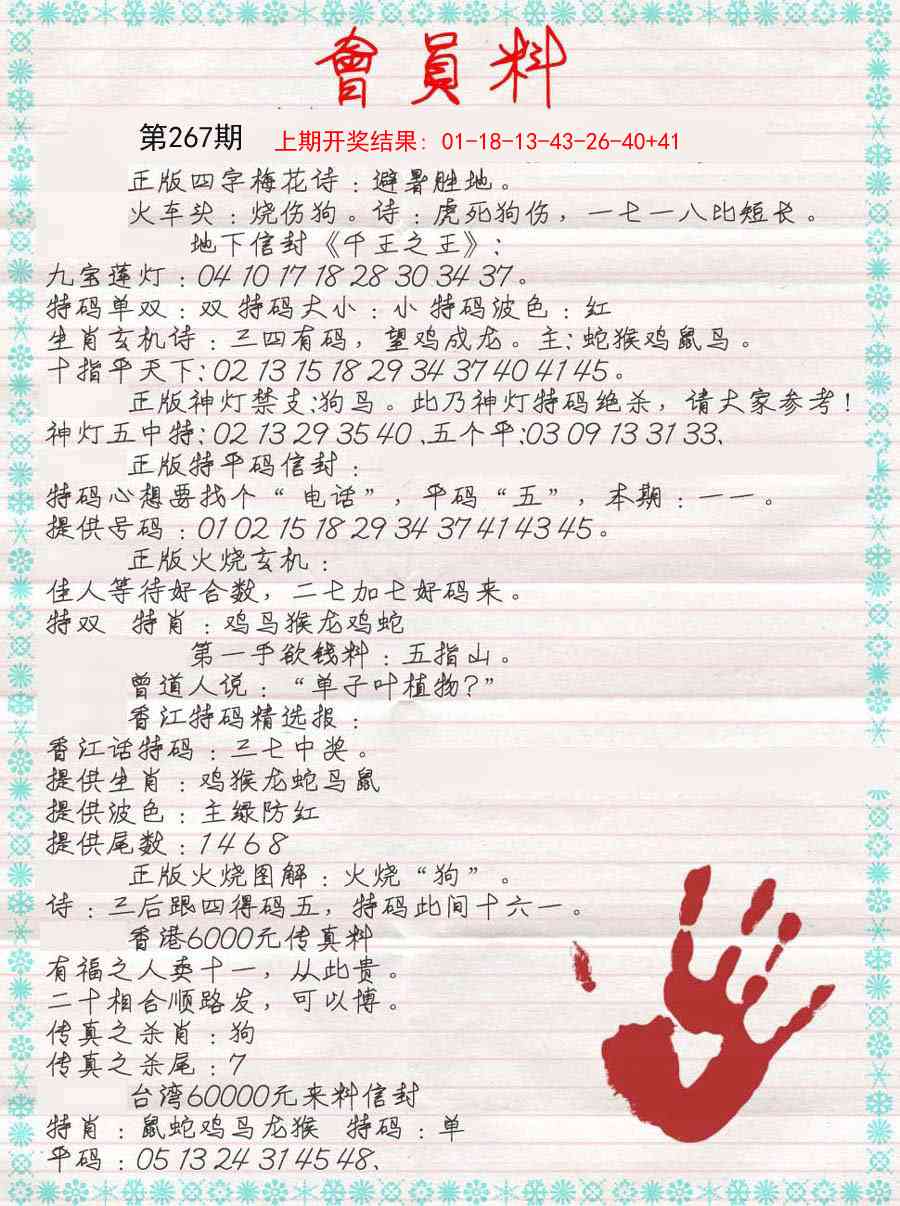 會員料
第267期 上期开奖结果：01-18-13-43-26-40+41
正版四字梅花诗：避暑胜地。
火车头：烧伤狗。诗：虎死狗伤，一七一八比短长。
地下信封《千王之王》：
九宝莲灯：04 10 17 18 28 30 34 37。
特码单双：双 特码大小：小 特码波色：红
生肖玄机诗：三四有码，望鸡成龙。主：蛇猴鸡鼠马。
十指平天下：02 13 15 18 29 34 37 40 41 45。
正版神灯禁支：狗马。此乃神灯特码绝杀，请大家参考！
神灯五中特：02 13 29 35 40、五个平：03 09 13 31 33、
正版特平码信封：
特码心想要找个“电话”，平码“五”，本期：一一。
提供号码：01 02 15 18 29 34 37 41 43 45。
正版火烧玄机：
佳人等待好合数，二七加七好码来。
特双 特肖：鸡马猴龙鸡蛇
第一手欲钱料：五指山。
曾道人说：“单子叶植物？”
香江特码精选报：
香江话特码：三七中奖。
提供生肖：鸡猴龙蛇马鼠
提供波色：主绿防红
提供尾数：1 4 6 8
正版火烧图解：火烧“狗”。
诗：三后跟四得码五，特码此间十六一。
香港6000元传真料
有福之人卖十一，从此贵。
二十相合顺路发，可以博。
传真之杀肖：狗
传真之杀尾：7
台湾60000元来料信封
特肖：鼠蛇鸡马龙猴 特码：单
平码：05 13 24 31 45 48、